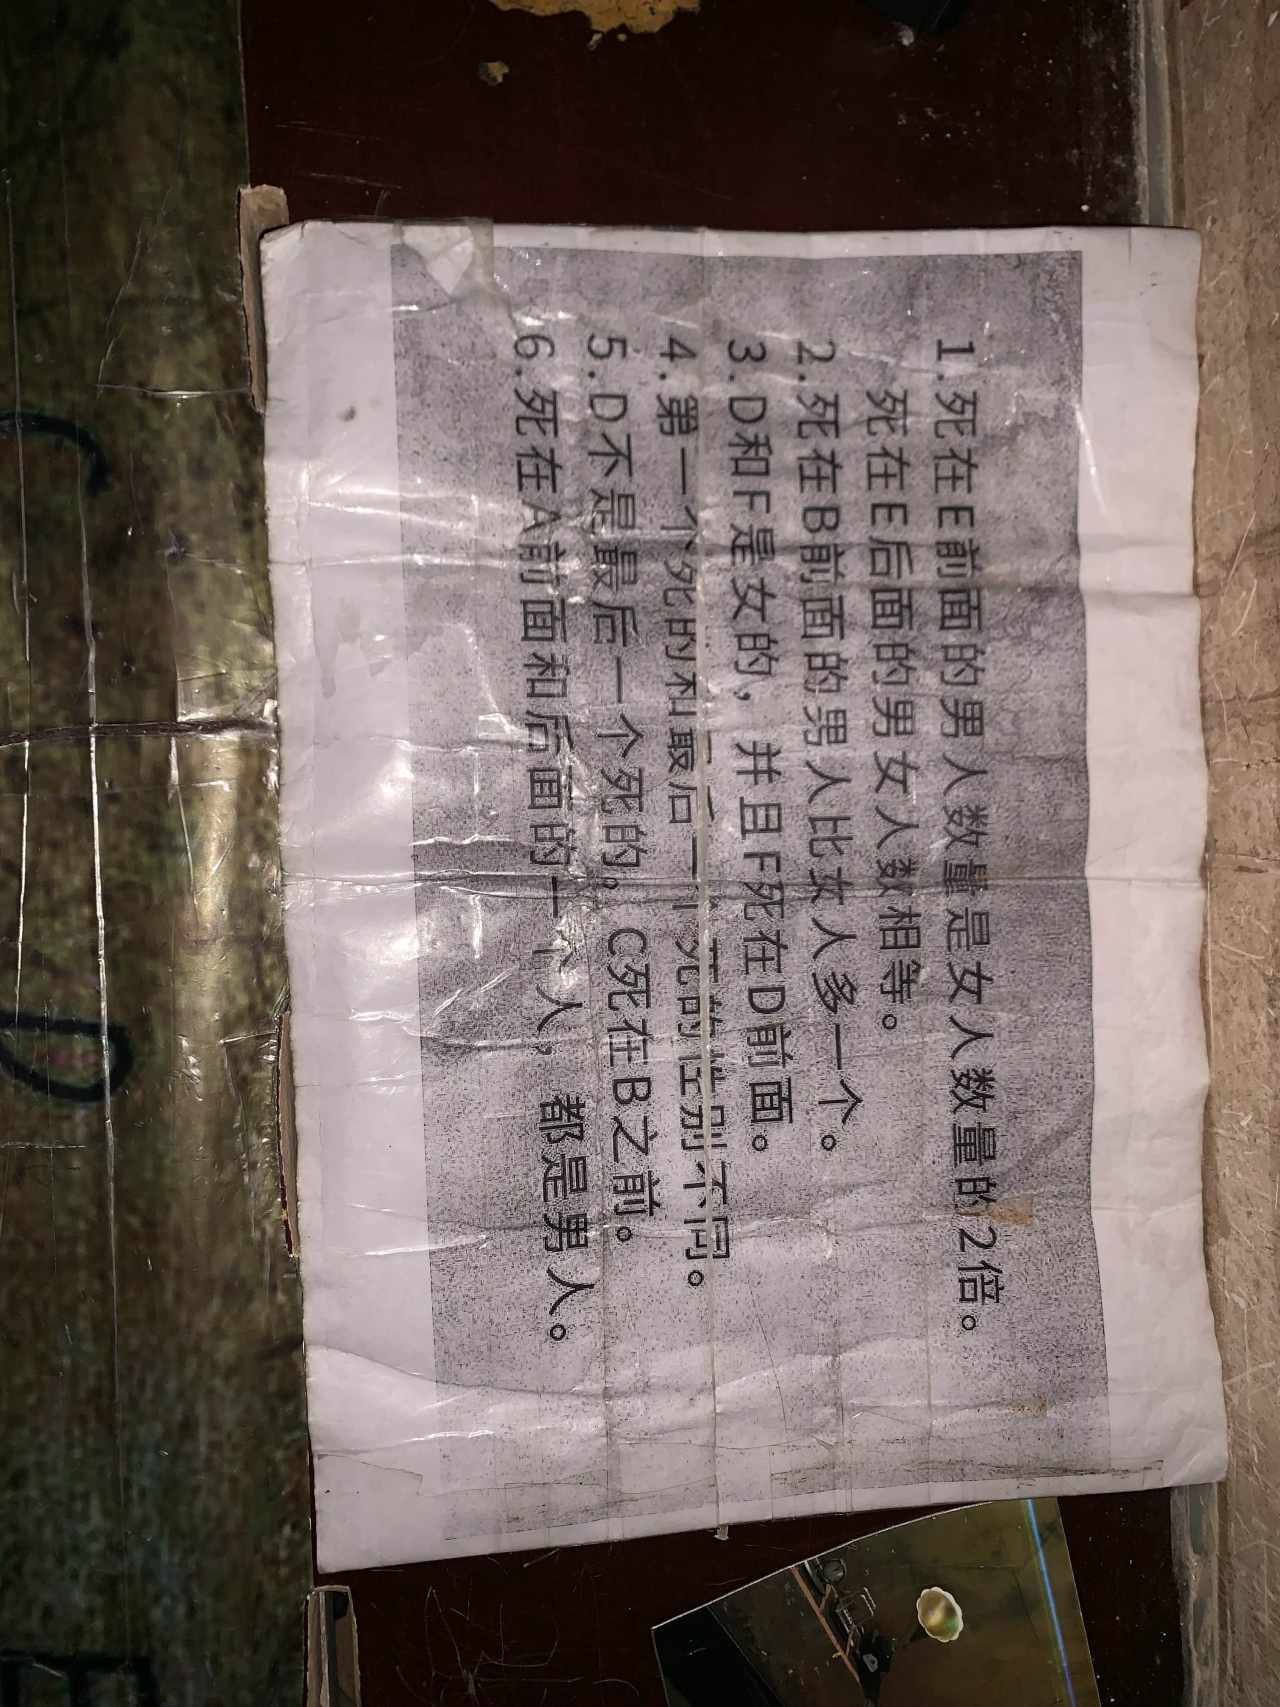 1.死在E前面的男人数量是女人数量的2倍。
死在E后面的男女人数相等。
2.死在B前面的男人比女人多一个。
3.D和F是女的，并且F死在D前面。
4.第一个死的和最后一个死的性别不同。
5.D不是最后一个死的。C死在B之前。
6.死在A前面和后面的一个人，都是男人。